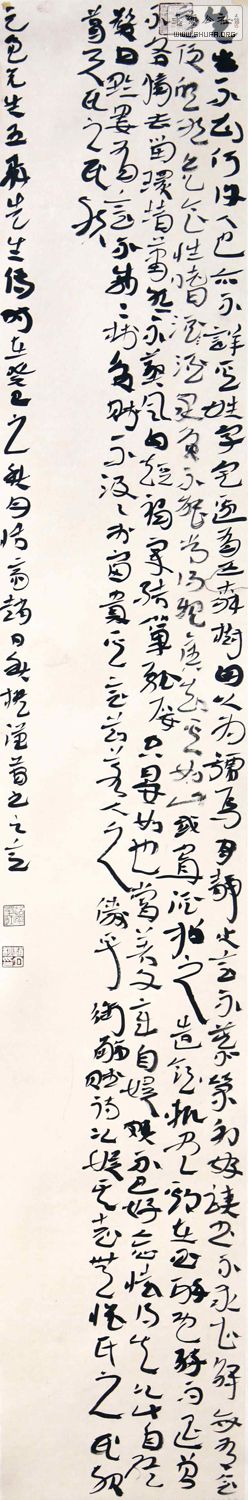 先生不知何許人也亦不詳其姓字宅邊有五柳樹因以為號焉閑靜少言不慕榮利好讀書不求甚解每有會
意便欣然忘食性嗜酒家貧不能常得親舊知其如此或置酒招之造飲輒盡期在必醉既醉而退曾
不吝情去留環堵蕭然不蔽風日短褐穿結簞瓢屢空晏如也常著文章自娛頗示己志忘懷得失以此自終
贊曰黔婁有言不戚戚於貧賤不汲汲於富貴其言茲若人之儔乎銜觴賦詩以娛其志無懷氏之民歟
葛天氏之民歟
先生五柳先生傳時在癸巳之秋月
WWW.SHUFA.ORG